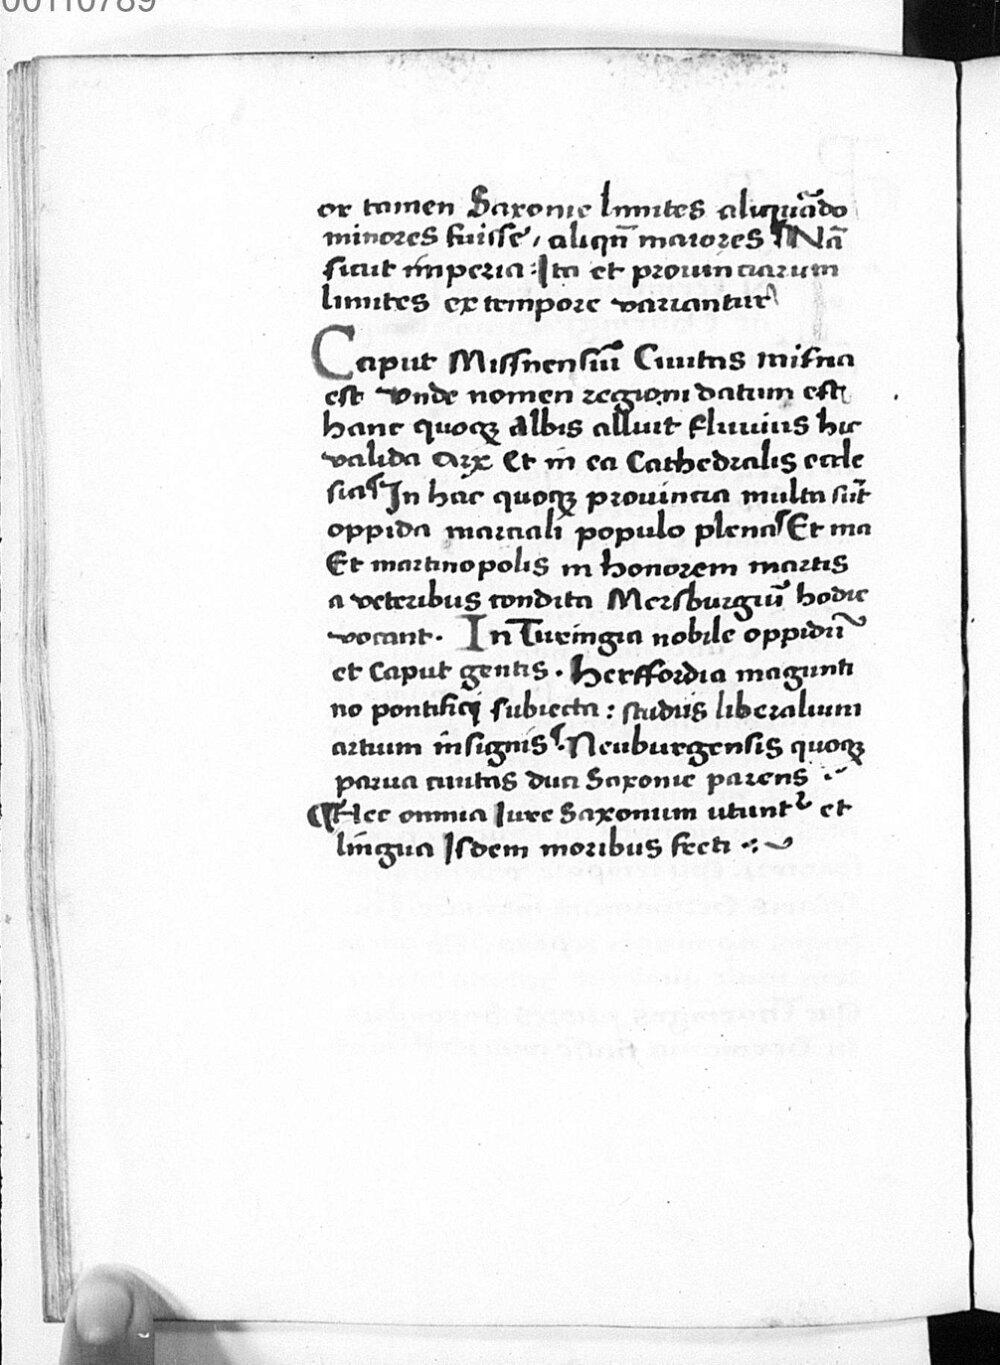 00110789
or tamen Saxonie limites aliquãdo
minores fuisse, aliqñ maiores Nã
sicut imperia: Ita et prouinciarum
limites ex tempore variantur
Caput Missnensiũ Ciuitas misna
est vnde nomen regioni datum est
hanc quoqꝫ Albis alluit fluuius hic
valida Arx Et in ea Cathedralis eccle
sia In hac quoqꝫ prouincia multa sũt
oppida marciali populo plena Et ma
Et martinopolis in honorem martis
a veteribus condita Mersburgiũ hodie
vocant. In Turingia nobile oppidũ
et Caput gentis. herffordia magunti
no pontifici subiecta: studiis liberalium
artium insignis. Neuburgensis quoqꝫ
parua ciuitas duci Saxonie parens
¶ Hec omnia Iure Saxonum utunt᷑ et
lingua Isdem moribus fecti